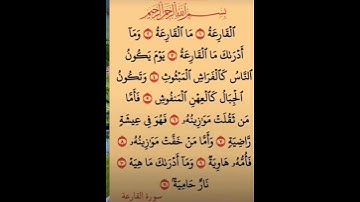 بسم الله الرحمن الرحيم
ٱلْقَارِعَةُ ۝ مَا ٱلْقَارِعَةُ ۝ وَمَآ
أَدْرَىٰكَ مَا ٱلْقَارِعَةُ ۝ يَوْمَ يَكُونُ
ٱلنَّاسُ كَٱلْفَرَاشِ ٱلْمَبْثُوثِ ۝ وَتَكُونُ
ٱلْجِبَالُ كَٱلْعِهْنِ ٱلْمَنفُوشِ ۝ فَأَمَّا
مَن ثَقُلَتْ مَوَٰزِينُهُۥ ۝ فَهُوَ فِى عِيشَةٍ
رَّاضِيَةٍ ۝ وَأَمَّا مَنْ خَفَّتْ مَوَٰزِينُهُۥ ۝
فَأُمُّهُۥ هَاوِيَةٌ ۝ وَمَآ أَدْرَىٰكَ مَا هِيَهْ ۝
نَارٌ حَامِيَةٌۢ ۝
سورة القارعة